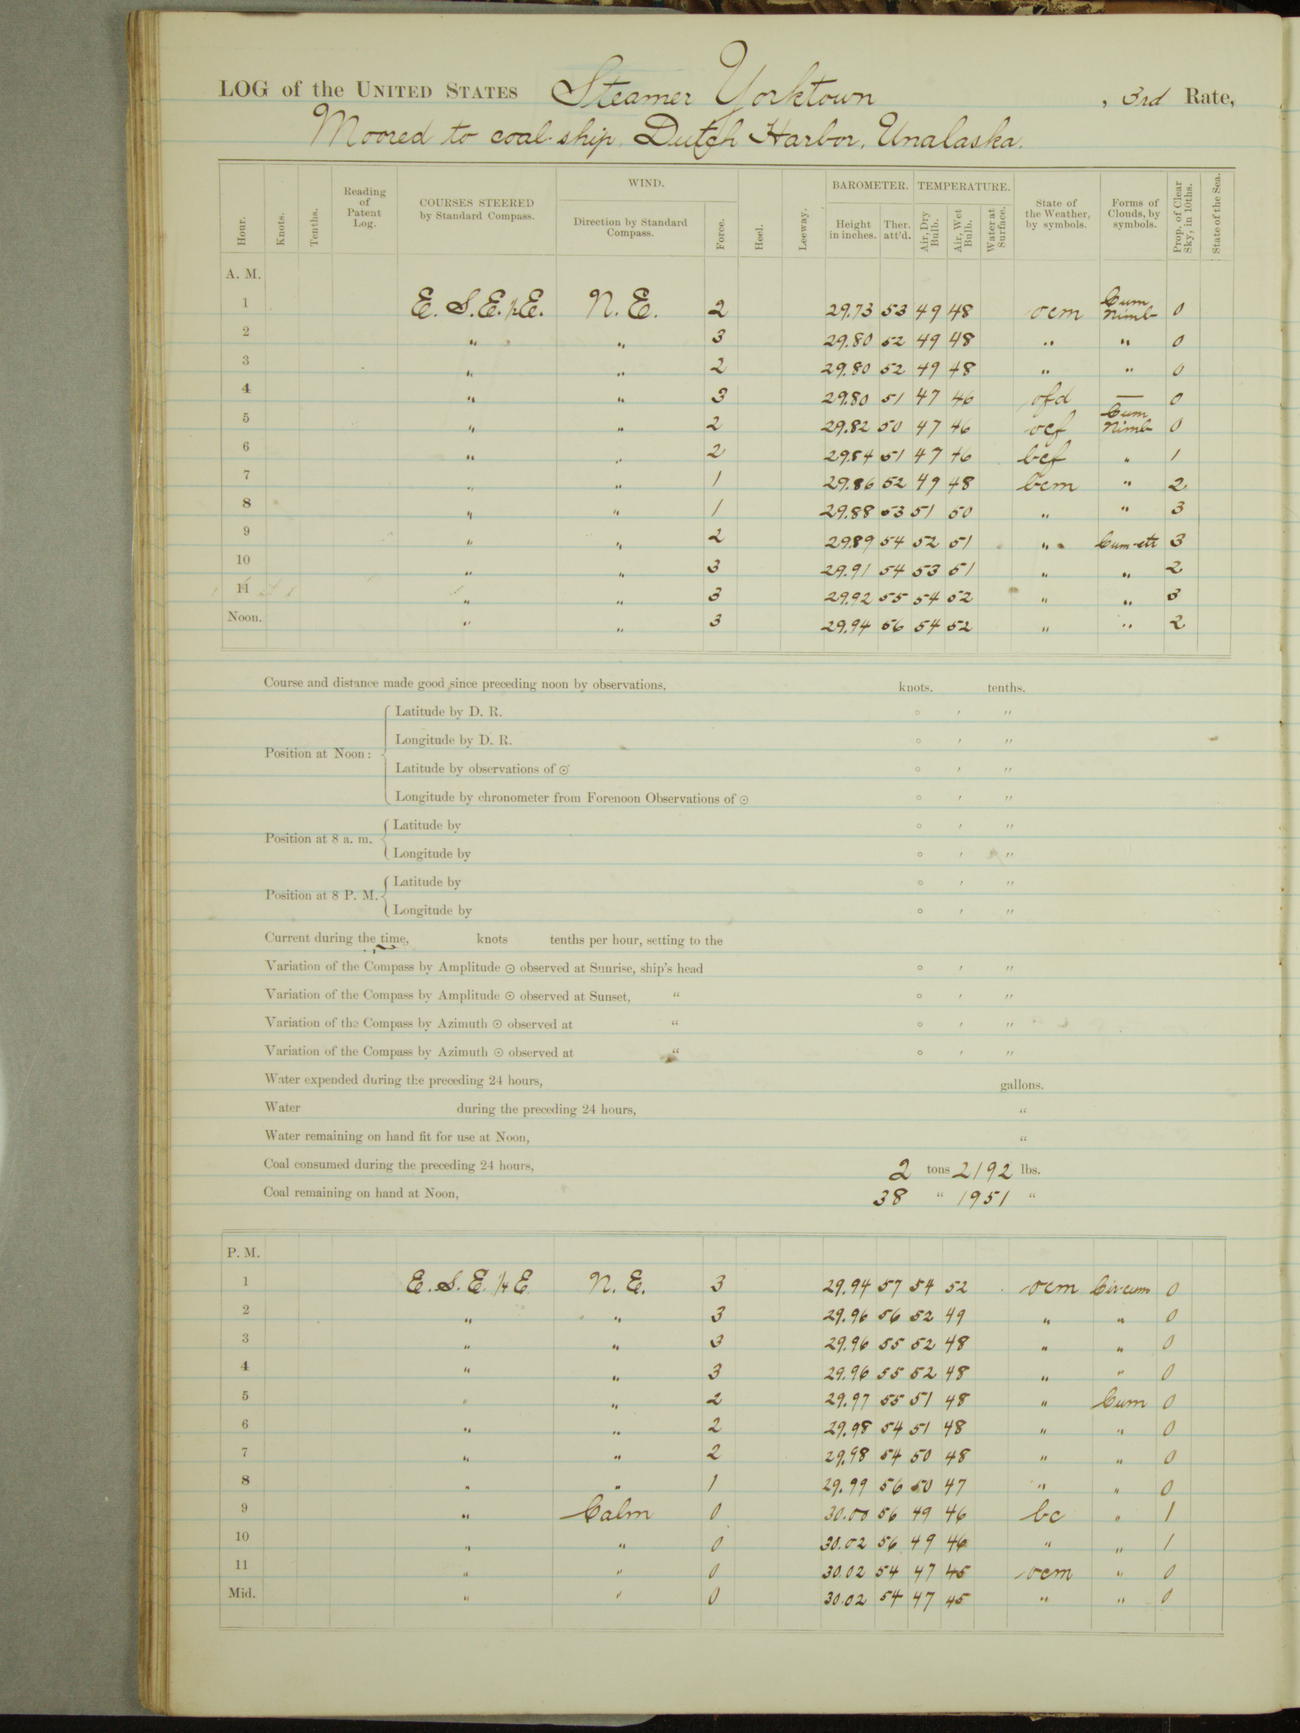 LOG of the UNITED STATES Steamer Yorktown , 3rd Rate,
Moored to coal ship, Dutch Harbor, Unalaska.
WIND. BAROMETER. TEMPERATURE.
Hour. Knots. Tenths. Reading of Patent Log. COURSES STEERED by Standard Compass. Direction by Standard Compass. Force. Heel. Leeway. Height in inches. Ther. att'd. Air, Dry Bulb. Air, Wet Bulb. Water at Surface. State of the Weather, by symbols. Forms of Clouds, by symbols. Prop. of Clear Sky, in 10ths. State of the Sea.
A. M.
1 E. S. E. ½ E. N. E. 2 29.73 53 49 48 ocm Cum Nimb 0
2 " " 3 29.80 52 49 48 " " 0
3 " " 2 29.80 52 49 48 " " 0
4 " " 3 29.80 51 47 46 ofd — 0
5 " " 2 29.82 50 47 46 ocf Cum Nimb 0
6 " " 2 29.84 51 47 46 bcf " 1
7 " " 1 29.86 52 49 48 bcm " 2
8 " " 1 29.88 53 51 50 " " 3
9 " " 2 29.89 54 52 51 " Cum-str 3
10 " " 3 29.91 54 53 51 " " 2
11 " " 3 29.92 55 54 52 " " 3
Noon. " " 3 29.94 56 54 52 " " 2
Course and distance made good since preceding noon by observations, knots. tenths.
Position at Noon: Latitude by D. R. ° ′ ″
Longitude by D. R. ° ′ ″
Latitude by observations of ☉ ° ′ ″
Longitude by chronometer from Forenoon Observations of ☉ ° ′ ″
Position at 8 a. m. Latitude by ° ′ ″
Longitude by ° ′ ″
Position at 8 P. M. Latitude by ° ′ ″
Longitude by ° ′ ″
Current during the time, knots tenths per hour, setting to the
Variation of the Compass by Amplitude ☉ observed at Sunrise, ship's head ° ′ ″
Variation of the Compass by Amplitude ☉ observed at Sunset, " ° ′ ″
Variation of the Compass by Azimuth ☉ observed at " ° ′ ″
Variation of the Compass by Azimuth ☉ observed at " ° ′ ″
Water expended during the preceding 24 hours, gallons.
Water during the preceding 24 hours, "
Water remaining on hand fit for use at Noon, "
Coal consumed during the preceding 24 hours, 2 tons 2192 lbs.
Coal remaining on hand at Noon, 38 " 1951 "
P. M.
1 E. S. E. ¼ E N. E. 3 29.94 57 54 52 ocm Cir-cum 0
2 " " 3 29.96 56 52 49 " " 0
3 " " 3 29.96 55 52 48 " " 0
4 " " 3 29.96 55 52 48 " " 0
5 " " 2 29.97 55 51 48 " Cum 0
6 " " 2 29.98 54 51 48 " " 0
7 " " 2 29.98 54 50 48 " " 0
8 " " 1 29.99 56 50 47 " " 0
9 " Calm 0 30.00 56 49 46 bc " 1
10 " " 0 30.02 56 49 46 " " 1
11 " " 0 30.02 54 47 45 ocm " 0
Mid. " " 0 30.02 54 47 45 " " 0